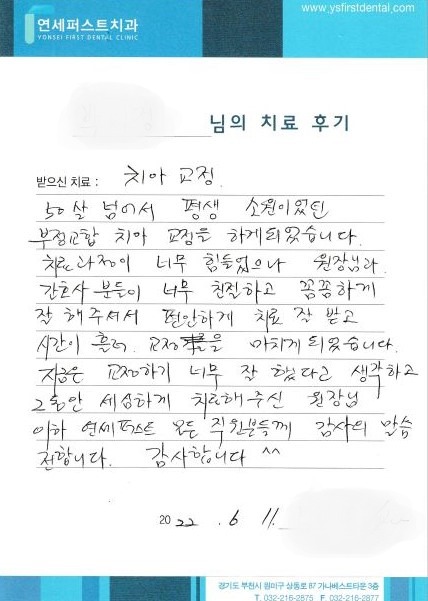 연세퍼스트치과
YONSEI FIRST DENTAL CLINIC
www.ysfirstdental.com
님의 치료 후기
받으신 치료 : 치아 교정.
50살 넘어서 평생 소원이었던
부정교합 치아 교정을 하게되었습니다.
치료과정이 너무 힘들었으나 원장님과
간호사분들이 너무 친절하고 꼼꼼하게
잘 해주셔서 편안하게 치료 잘 받고
시간이 흘러. 교정을 마치게 되었습니다.
지금은 교정하기 너무 잘 했다고 생각하고
그동안 세심하게 치료해주신 원장님
이하 연세퍼스트 모든 직원분들께 감사의 말씀
전합니다. 감사합니다 ^^
2022. 6. 11.
경기도 부천시 원미구 상동로 87 가나베스트타운 3층
T. 032-216-2875 F. 032-216-2877